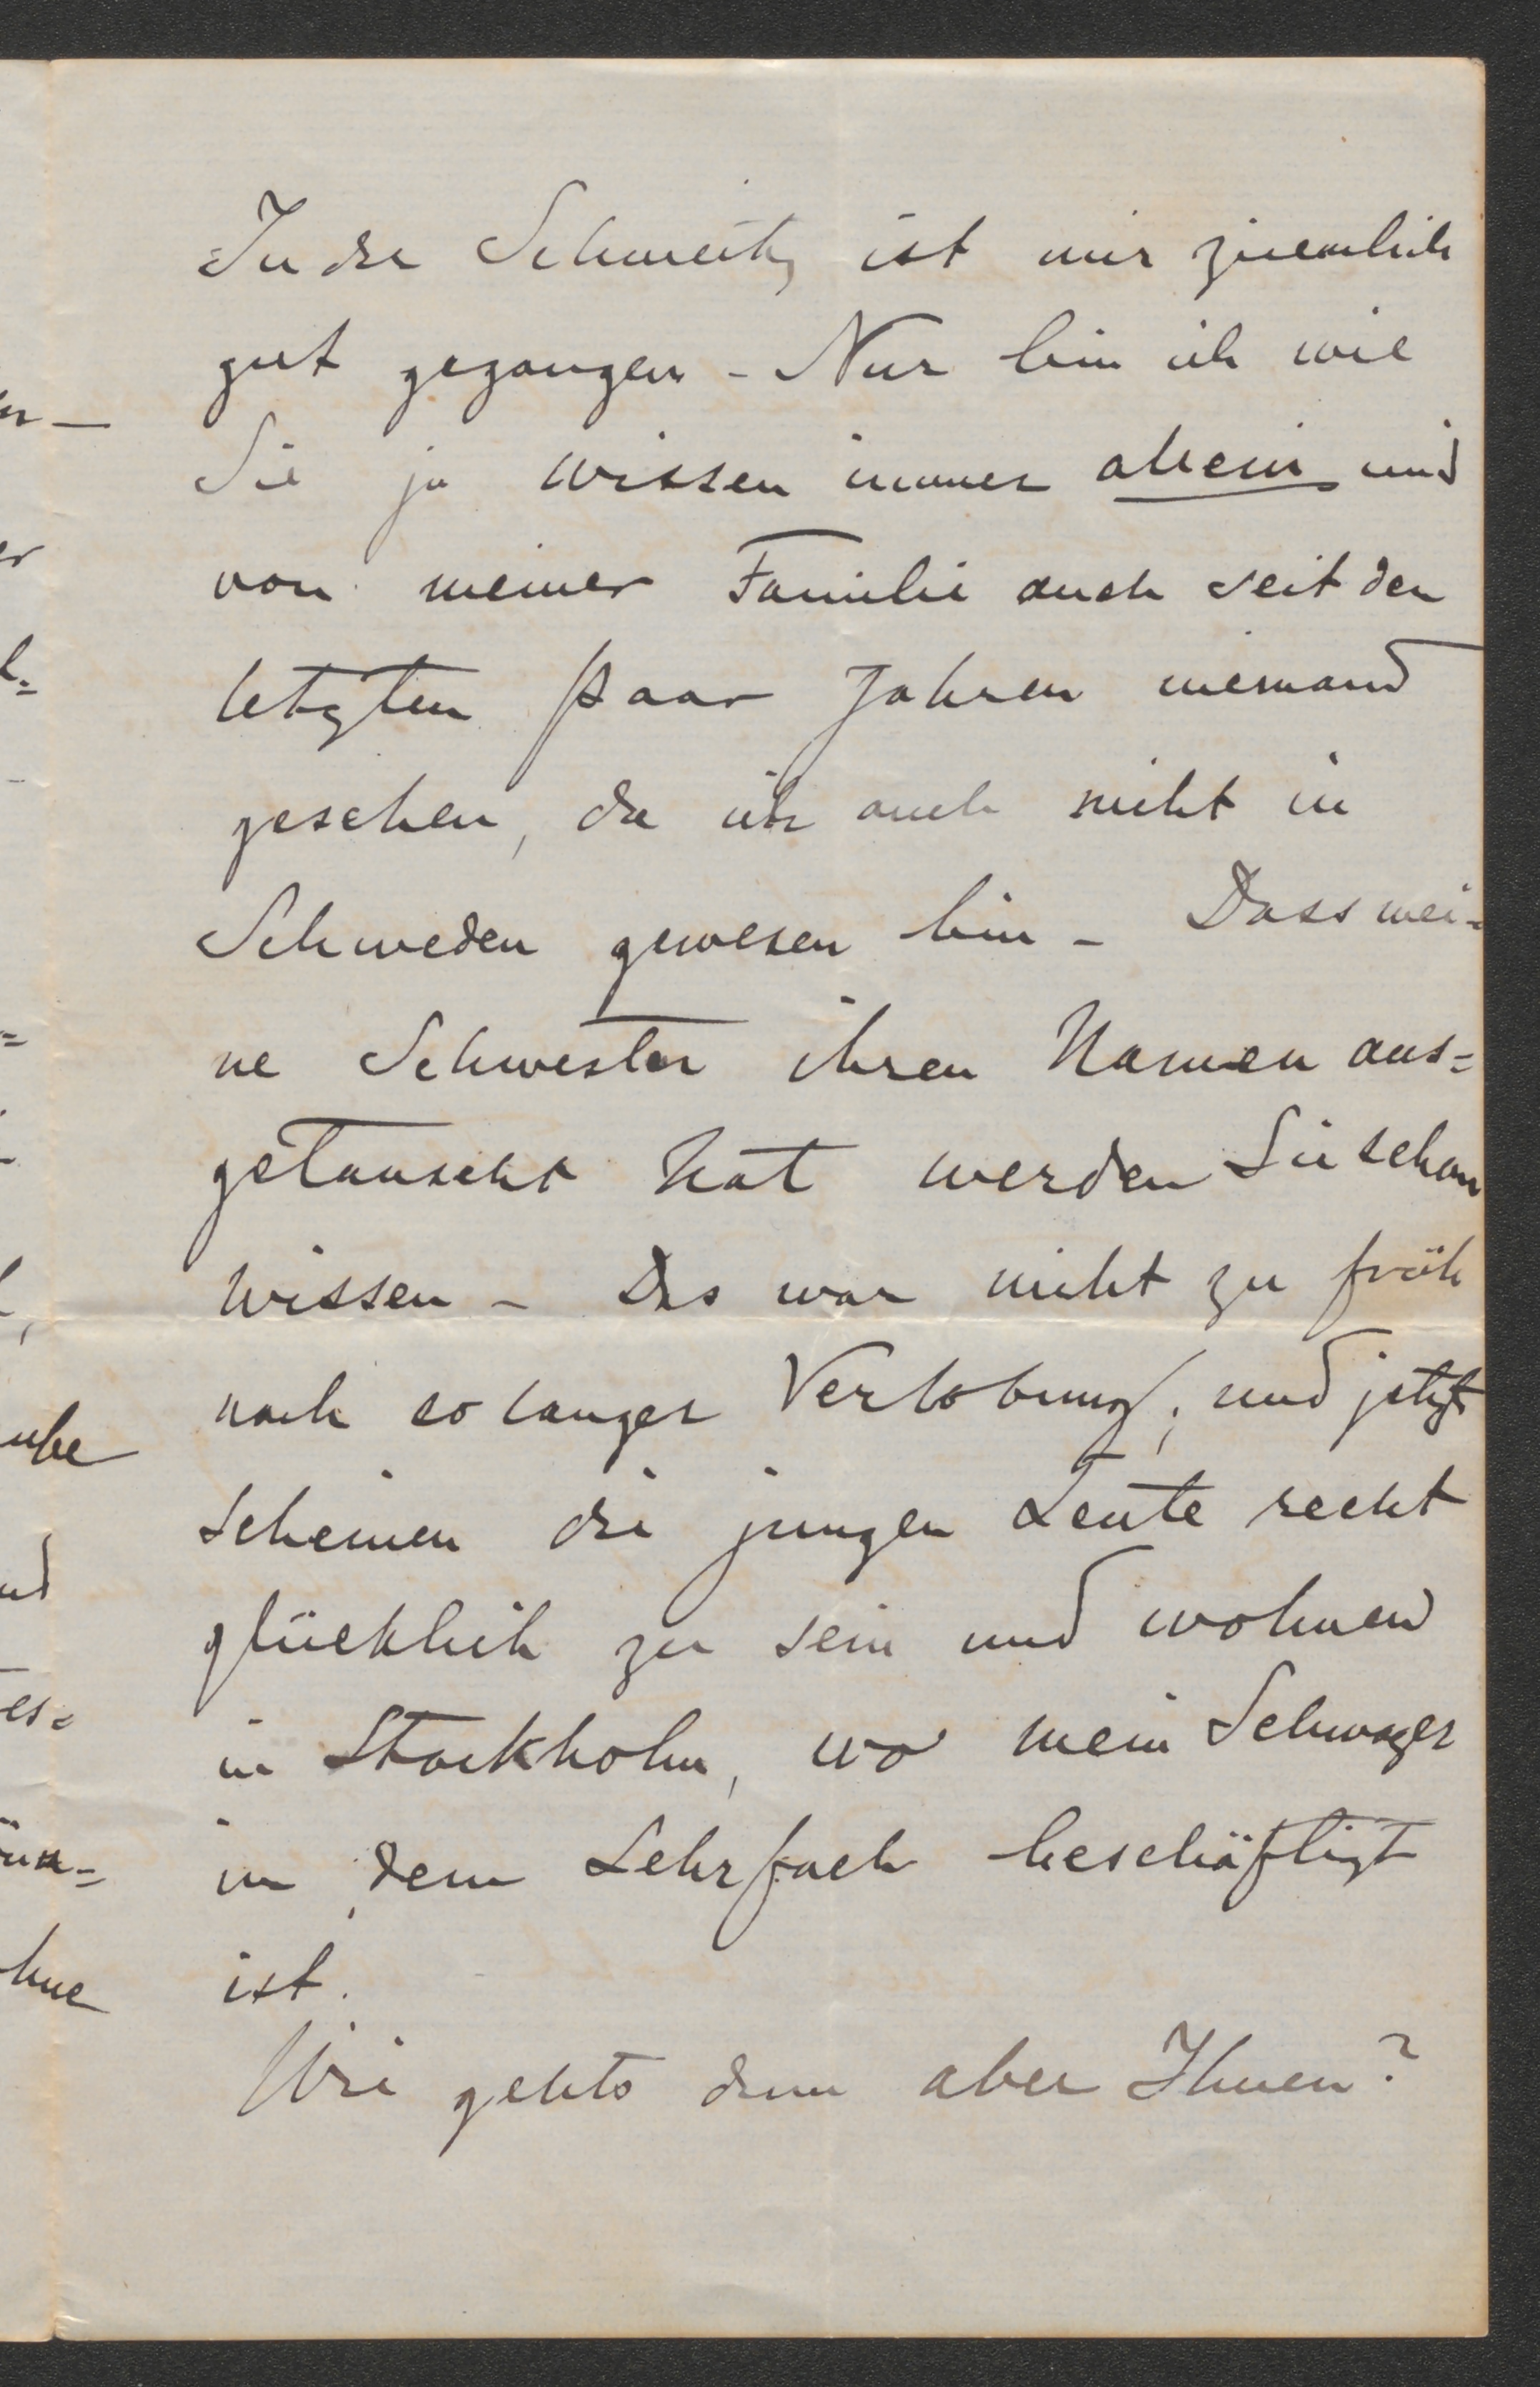 In der Schweitz ist mir ziemlich
gut gegangen - Nur bin ich wie
Sie ja wissen immer allein und
von meiner Familie auch seit den
letzten paar Jahren niemand
gesehen, da ich auch nicht in
Schweden gewesen bin - Dass mei-
ne Schwester ihren Namen aus=
getauscht hat werden Sie schon
wissen - Das war nicht zu früh
nach so langer Verlobung, und jetzt
scheinen die jungen Leute recht
glücklich zu sein und wohnen
in Stockholm, wo mein Schwager
in dem Lehrfach beschäftigt
ist.
Wie gehts denn aber Ihnen?